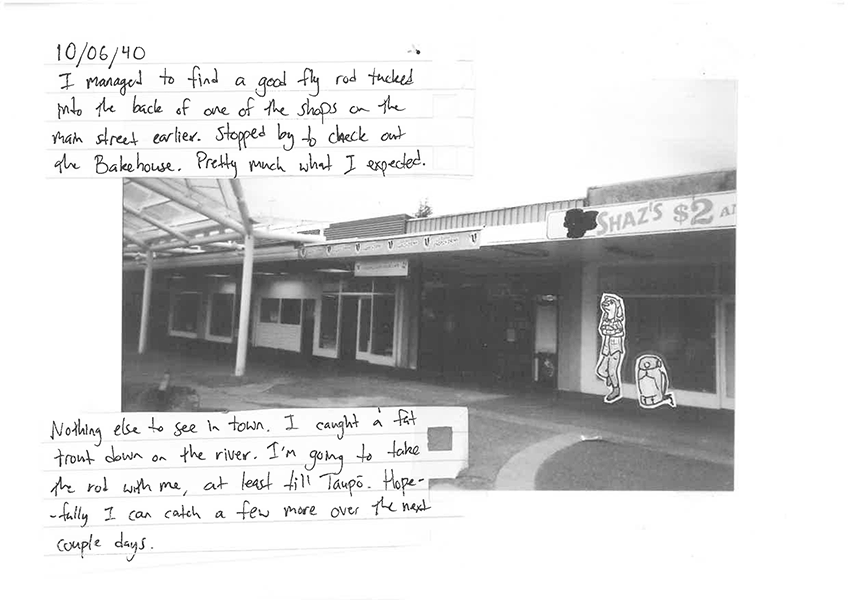 10/06/40
I managed to find a good fly rod tucked
into the back of one of the shops on the
main street earlier. Stopped by to check out
the Bakehouse. Pretty much what I expected.
SHAZ'S $2 AN
Nothing else to see in town. I caught a fat
trout down on the river. I'm going to take
the rod with me, at least till Taupō. Hope-
-fully I can catch a few more over the next
couple days.